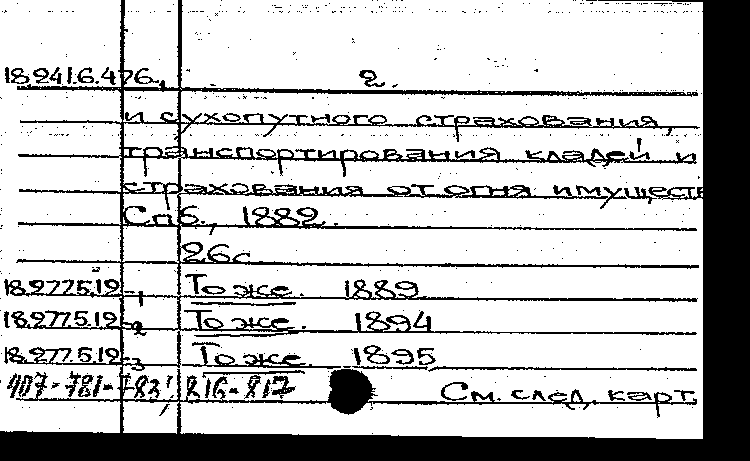 18.241.6.476, 2.
и сухопутного страхования,
транспортирования кладей и
страхования от огня имуществ
Спб., 1882.
26с
18.277.5.12-1 То же. 1889
18.277.5.12-2 То же. 1894
18.277.5.12-3 То же. 1895
907-781-783, 816-817 См. след. карт.